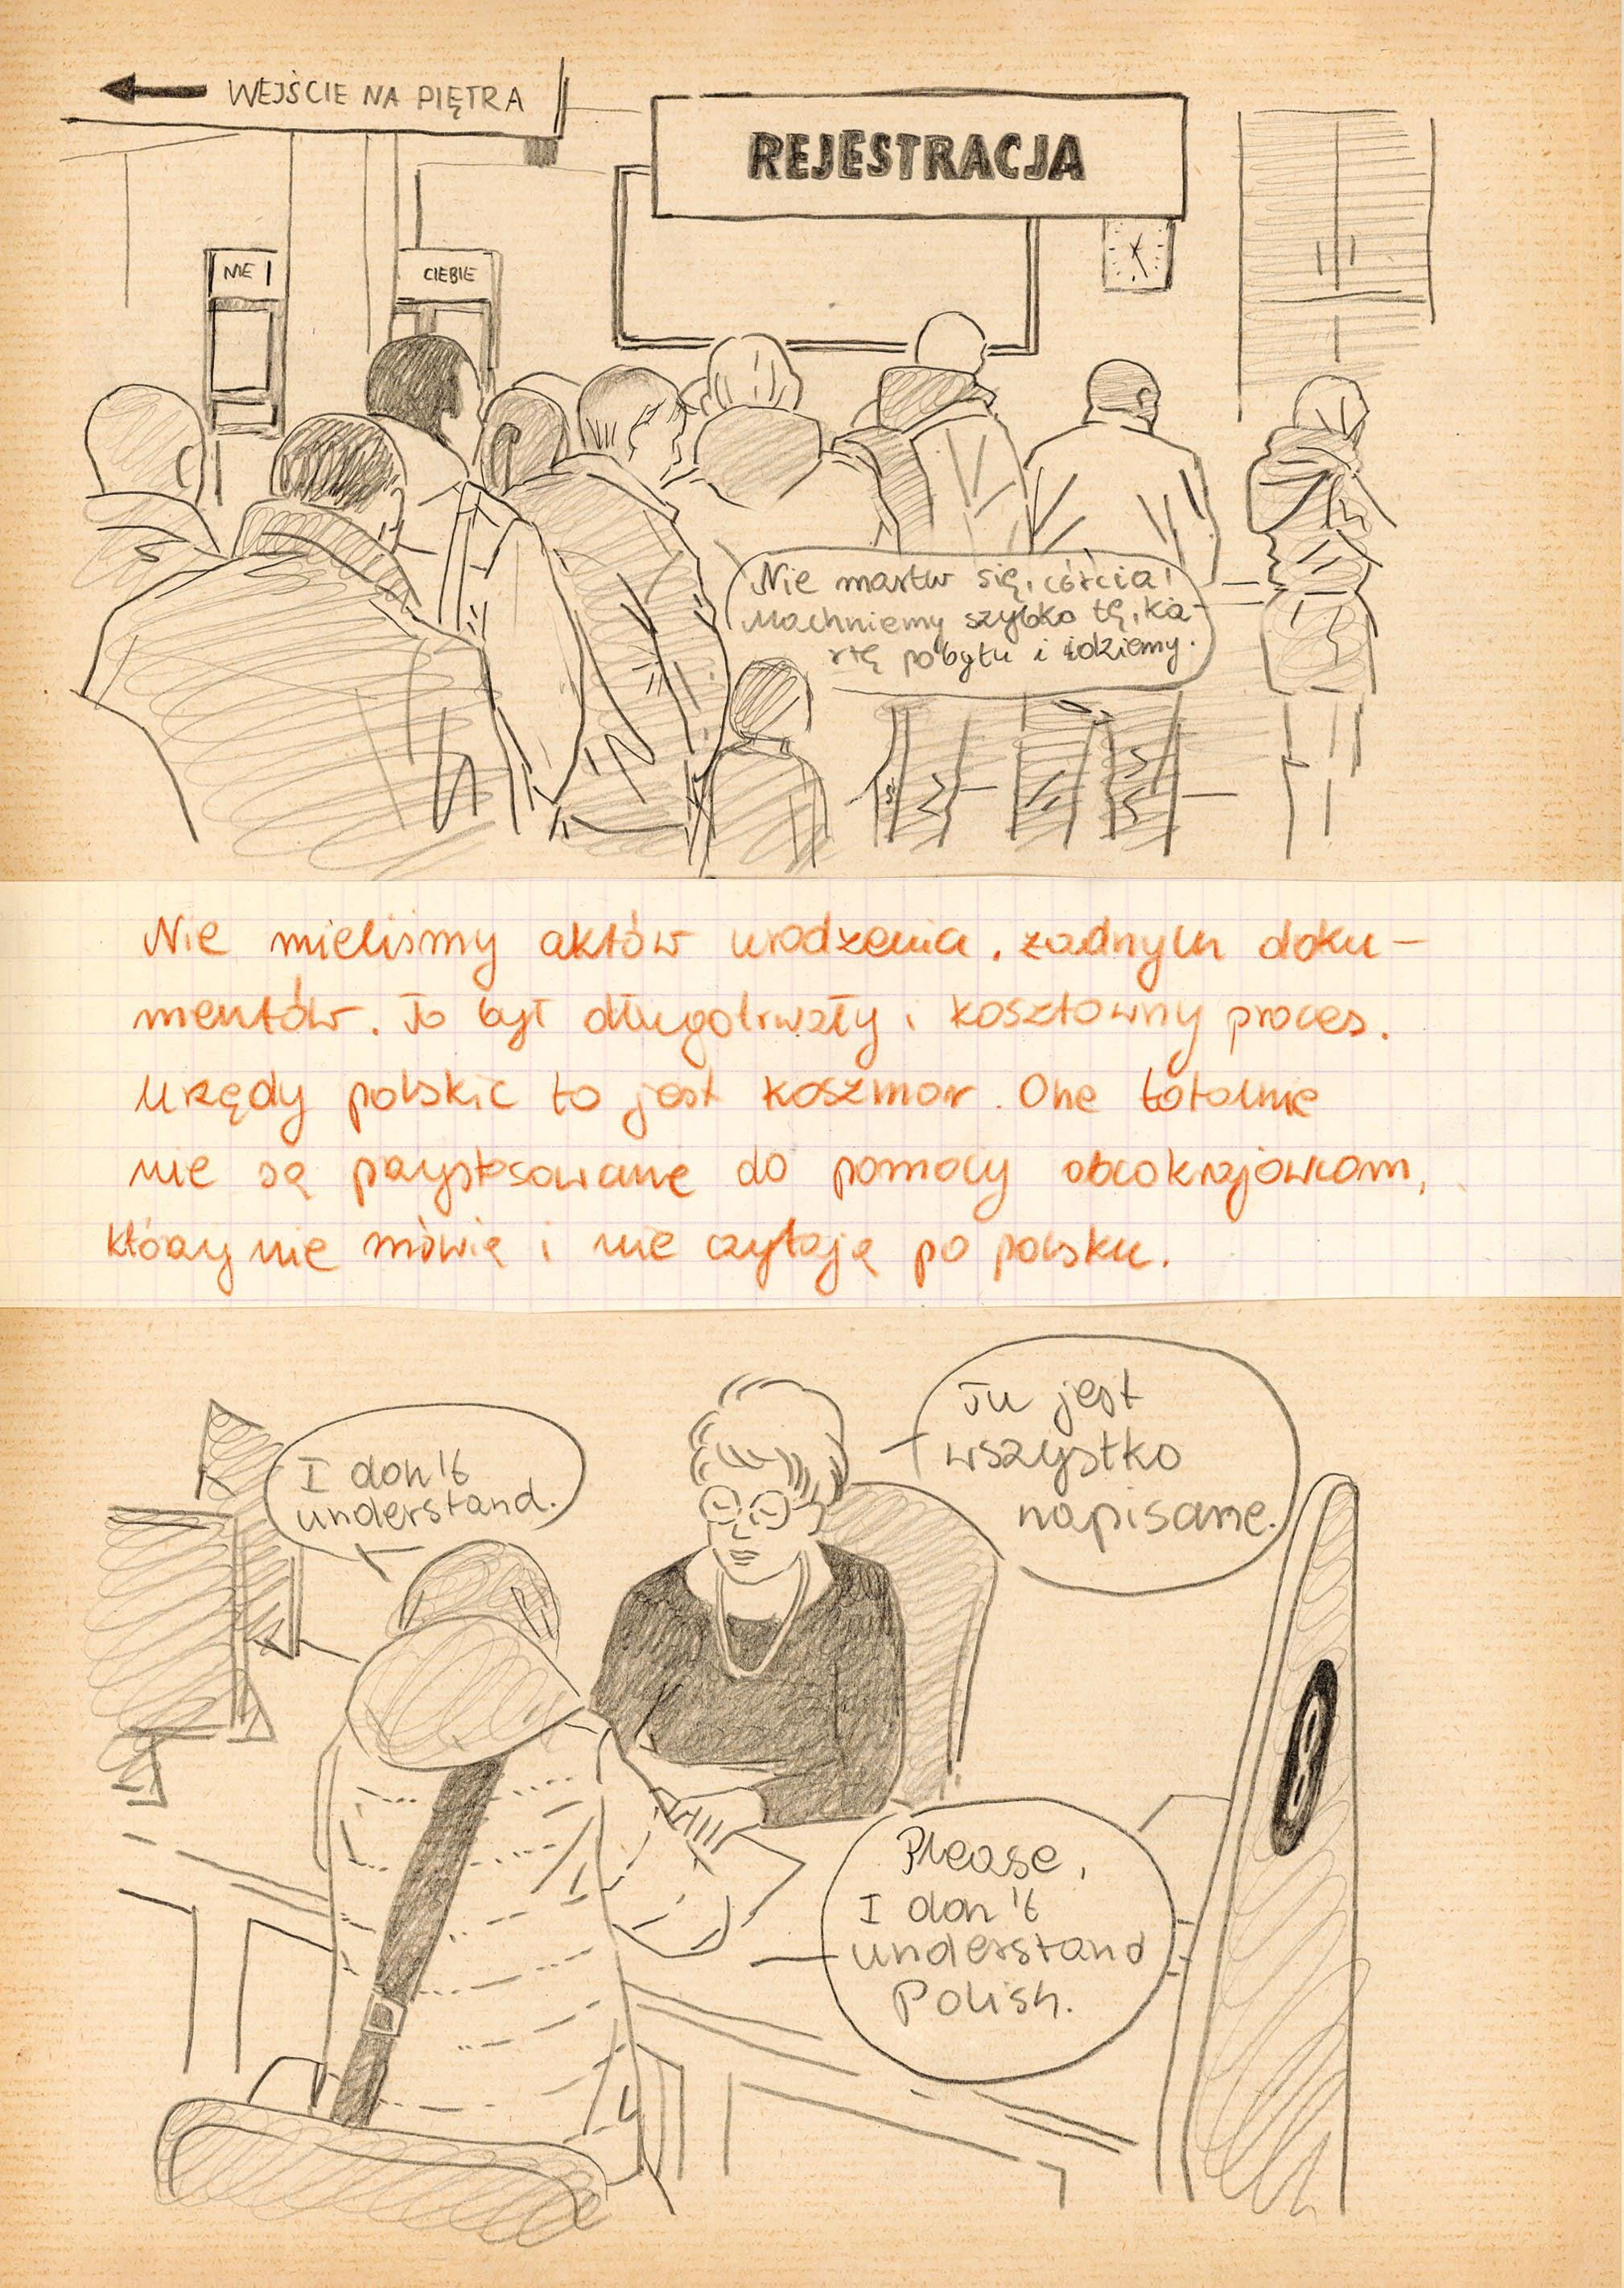 WEJŚCIE NA PIĘTRA
REJESTRACJA
NIE
CIEBIE
Nie martw się, córcia!
Machniemy szybko tę ka-
rtę pobytu i idziemy.
Nie mieliśmy aktów urodzenia, żadnych doku-
mentów. To był długotrwały i kosztowny proces.
Urzędy polskie to jest koszmar. One totalnie
nie są przystosowane do pomocy obcokrajowcom,
którzy nie mówią i nie czytają po polsku.
I don't
understand.
Tu jest
wszystko
napisane.
Please,
I don't
understand
Polish.
8